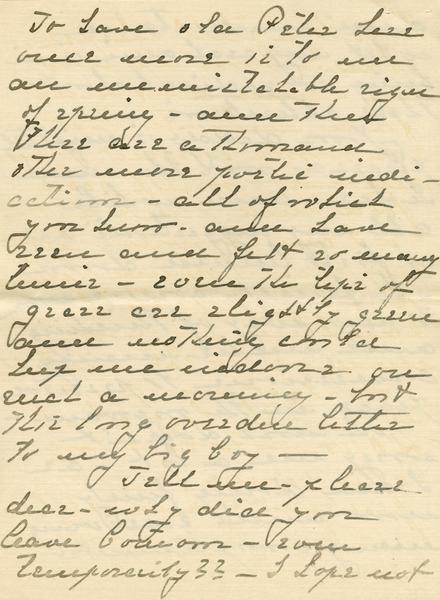 To have old Peter here
once more is to me
an unmistakable sign
of spring - and then
there are a thousand
other more poetic indi-
cations - all of which
you know - and have
seen and felt so many
times - even the tips of
grass are slightly green
and nothing could
keep me indoors on
such a morning - but
this long overdue letter
to my big boy —
Tell me - please
dear - why did you
leave - even
temporarily?? - I hope not